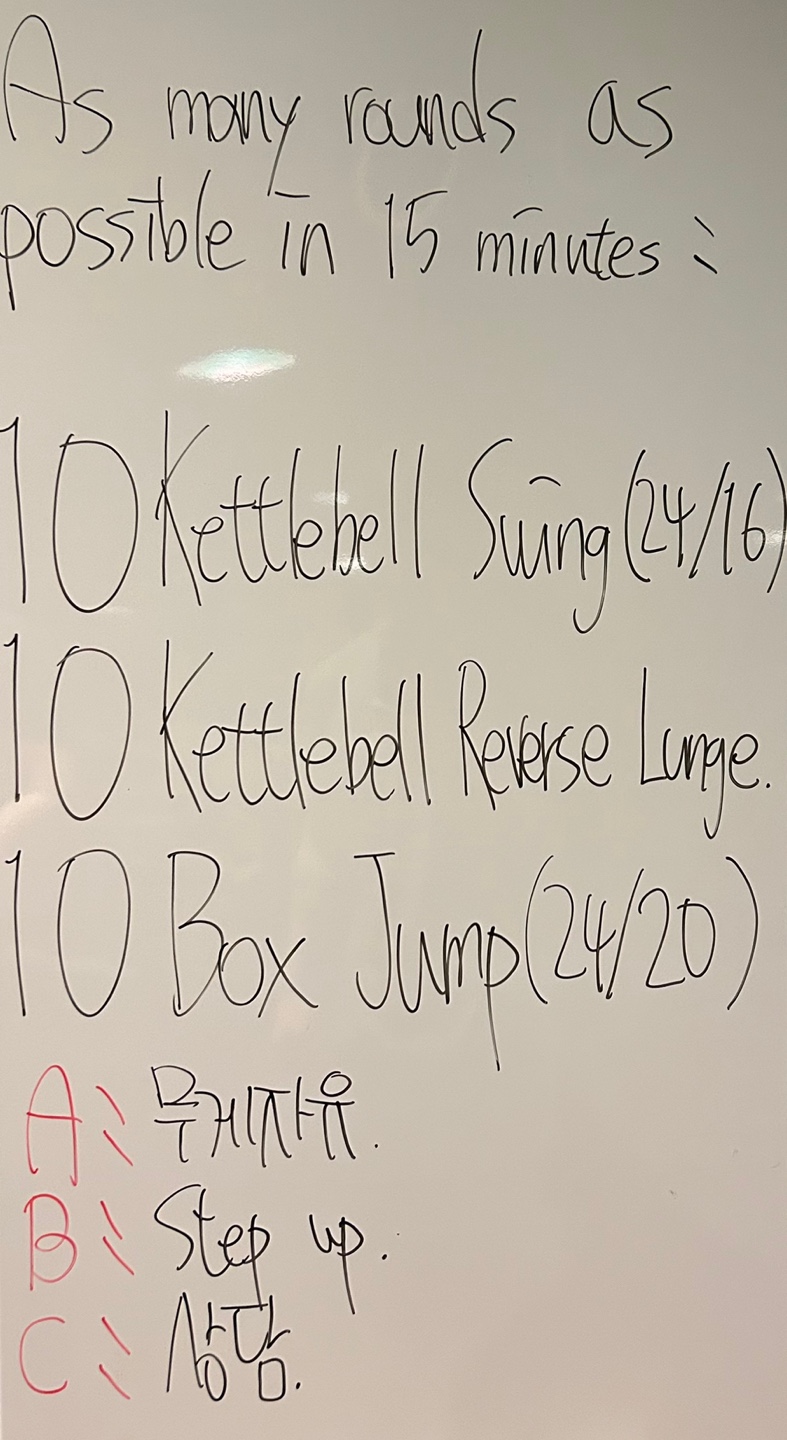 As many rounds as
possible in 15 minutes:
10 Kettlebell Swing (24/16)
10 Kettlebell Reverse Lunge.
10 Box Jump (24/20)
A: 무게자유.
B: Step up.
C: 상담.